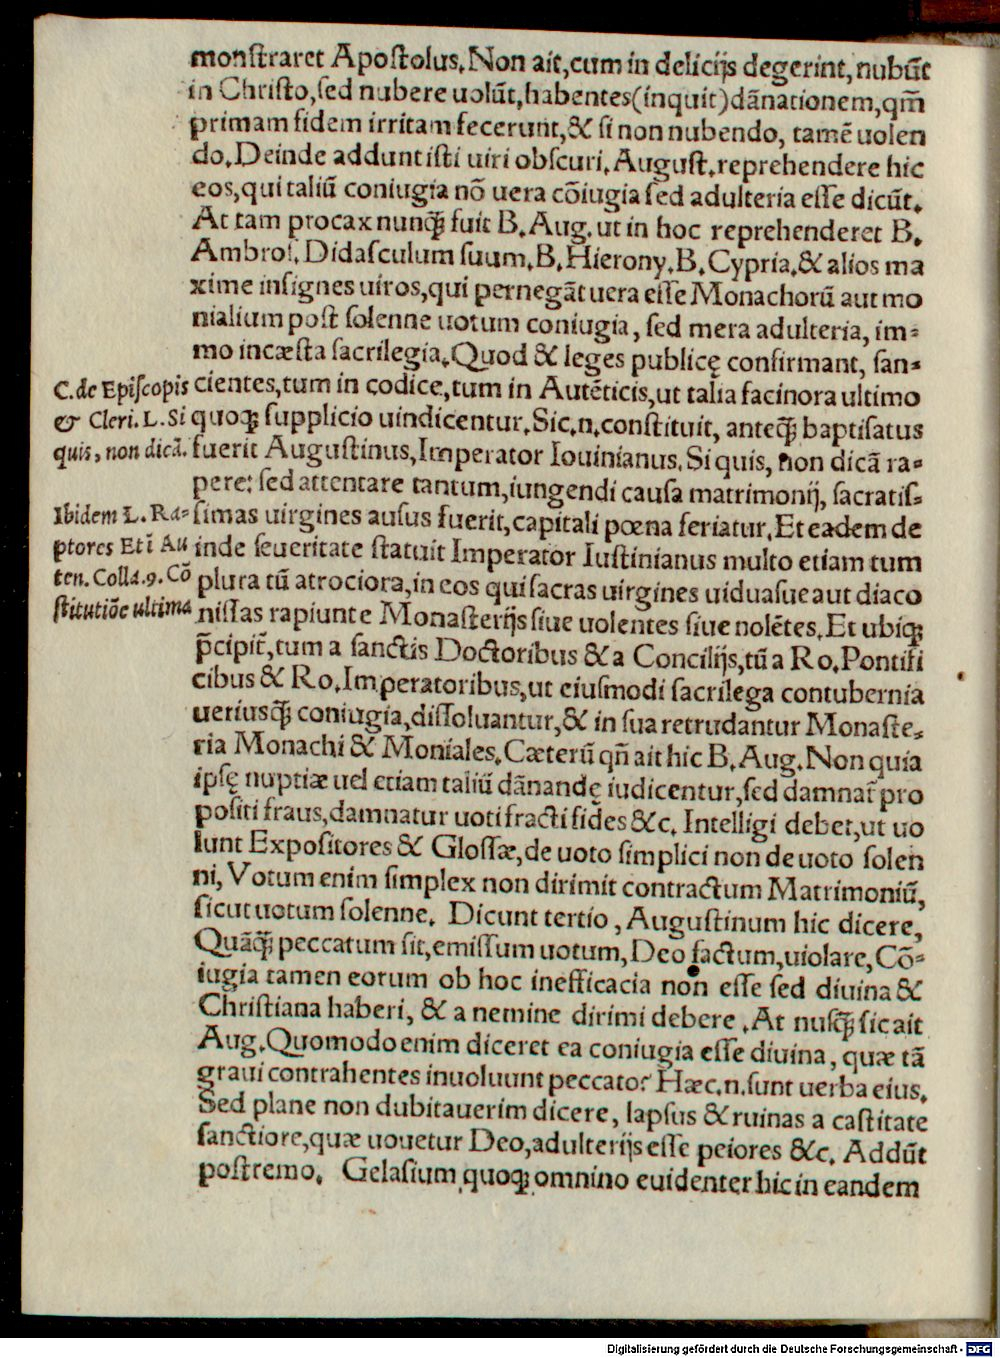 monſtraret Apoſtolus. Non ait, cum in delicijs degerint, nubūt
in Chriſto, ſed nubere uolūt, habentes (inquit) dānationem, qm̄
primam fidem irritam fecerunt, & ſi non nubendo, tamē uolen
do. Deinde addunt iſti uiri obſcuri. Auguſt. reprehendere hic
eos, qui taliū coniugia nō uera cōiugia ſed adulteria eſſe dicūt.
At tam procax nunꝙ̄ fuit B. Aug. ut in hoc reprehenderet B.
Ambroſ. Didaſculum ſuum. B. Hierony. B. Cypria. & alios ma
xime inſignes uiros, qui pernegāt uera eſſe Monachorū aut mo
nialium poſt ſolenne uotum coniugia, ſed mera adulteria, im-
mo incæſta ſacrilegia. Quod & leges publicę confirmant, ſan-
C. de Epiſcopis
& Cleri. L. Si
quis, non dicā.
cientes, tum in codice, tum in Autēticis, ut talia facinora ultimo
quoqꝫ ſupplicio uindicentur. Sic. n. conſtituit, anteꝙ̄ baptiſatus
fuerit Auguſtinus, Imperator Iouinianus. Si quis, non dicā ra-
pere: ſed attentare tantum, iungendi cauſa matrimonij, ſacratiſ-
Ibidem L. Ra-
ptores Et ī Au
ten. Colla. 9. Cō
ſtitutiōe ultima
ſimas uirgines auſus fuerit, capitali pœna feriatur. Et eadem de
inde ſeueritate ſtatuit Imperator Iuſtinianus multo etiam tum
plura tū atrociora, in eos qui ſacras uirgines uiduaſue aut diaco
niſſas rapiunt e Monaſterijs ſiue uolentes ſiue nolētes. Et ubiqꝫ
p̄cipit̄, tum a ſanctis Doctoribus & a Concilijs, tū a Ro. Pontifi
cibus & Ro. Imperatoribus, ut eiuſmodi ſacrilega contubernia
ueriusꝙ̄ coniugia, diſſoluantur, & in ſua retrudantur Monaſte-
ria Monachi & Moniales. Cæterū qn̄ ait hic B. Aug. Non quia
ipſę nuptiæ uel etiam taliū dānandę iudicentur, ſed damnat̄ pro
poſiti fraus, damnatur uoti fracti fides &c. Intelligi debet, ut uo
lunt Expoſitores & Gloſſæ, de uoto ſimplici non de uoto ſolen
ni, Votum enim ſimplex non dirimit contractum Matrimoniū,
ſicut uotum ſolenne. Dicunt tertio, Auguſtinum hic dicere,
Quāꝙ̄ peccatum ſit, emiſſum uotum, Deo factum, uiolare, Cō-
iugia tamen eorum ob hoc inefficacia non eſſe ſed diuina &
Chriſtiana haberi, & a nemine dirimi debere. At nuſꝙ̄ ſic ait
Aug. Quomodo enim diceret ea coniugia eſſe diuina, quæ tā
graui contrahentes inuoluunt peccato? Hæc. n. ſunt uerba eius.
Sed plane non dubitauerim dicere, lapſus & ruinas a caſtitate
ſanctiore, quæ uouetur Deo, adulterijs eſſe peiores &c. Addūt
poſtremo. Gelaſium quoqꝫ omnino euidenter hic in eandem
Digitalisierung gefördert durch die Deutsche Forschungsgemeinschaft - DFG